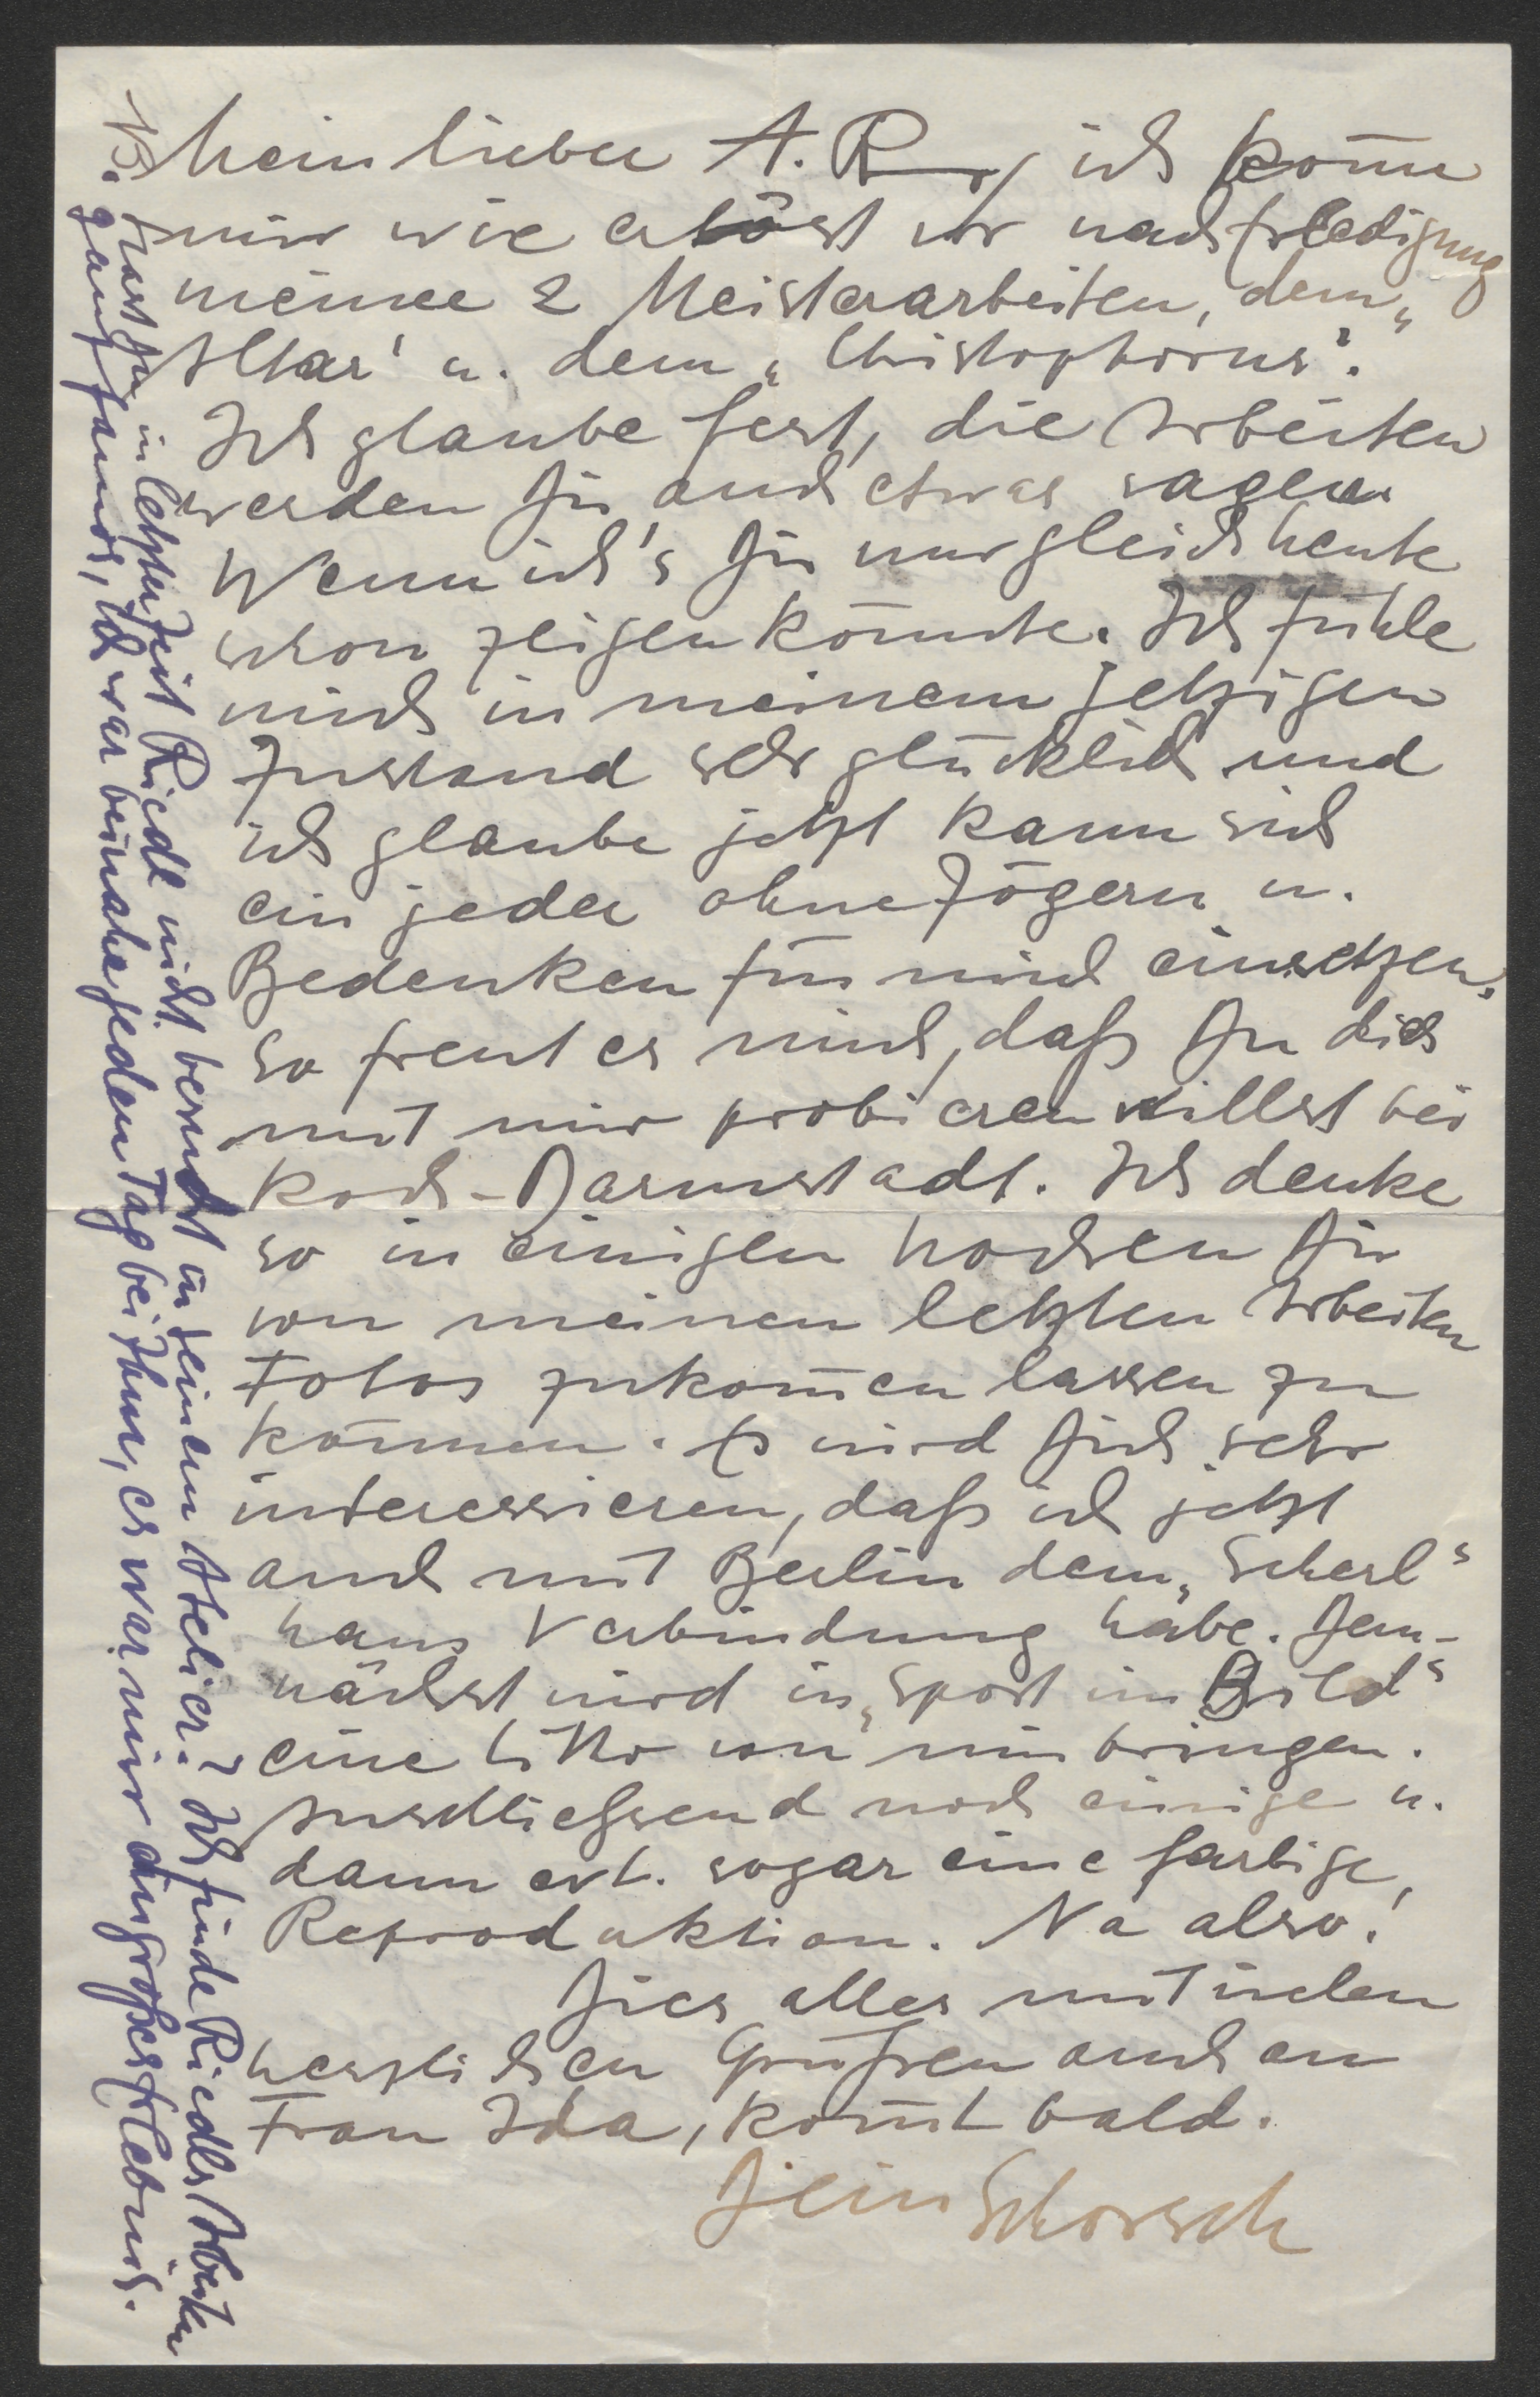 Mein lieber A. R., ich kom̄e
mir wie erlöst vor nach Erledigung
meiner 2 Meisterarbeiten, dem „
Altar' u. dem „Christophorus".
Ich glaube fest, die Arbeiten
werden Dir auch etwas sagen.
Wenn ich's Dir nur gleich heute
schon zeigen könnte. Ich fühle
mich in meinem jetzigen
Zustand sehr glücklich und
ich glaube jetzt kann sich
ein jeder ohne Zögern u.
Bedenken für mich einsetzen.
So freut es mich, daß Du dich
mit mir probieren willst bei
Koch-Darmstadt. Ich denke
so in einigen Wochen Dir
von meinen letzten Arbeiten
Fotos zukom̄en lassen zu
können. Es wird Dich sehr
interessieren, daß ich jetzt
auch mit Berlin dem „Scherl"
haus Verbindung habe. Dem-
nächst wird in „Sport im Bild"
eine Litho von mir bringen.
Anschließend noch einige u.
dann evt. sogar eine farbige
Reproduktion. Na also!
Dies alles mit vielen
herzlichen Grüßen auch an
Frau Ida, kom̄t bald.
Dein Schorsch
NB. Hast Du in letzter Zeit Riedl nicht besucht in seinem Atelier? Ich finde Riedls Arbeiten
ganz famos, ich war beinahe jeden Tag bei Ihm, es war mir ein großes Erlebnis.